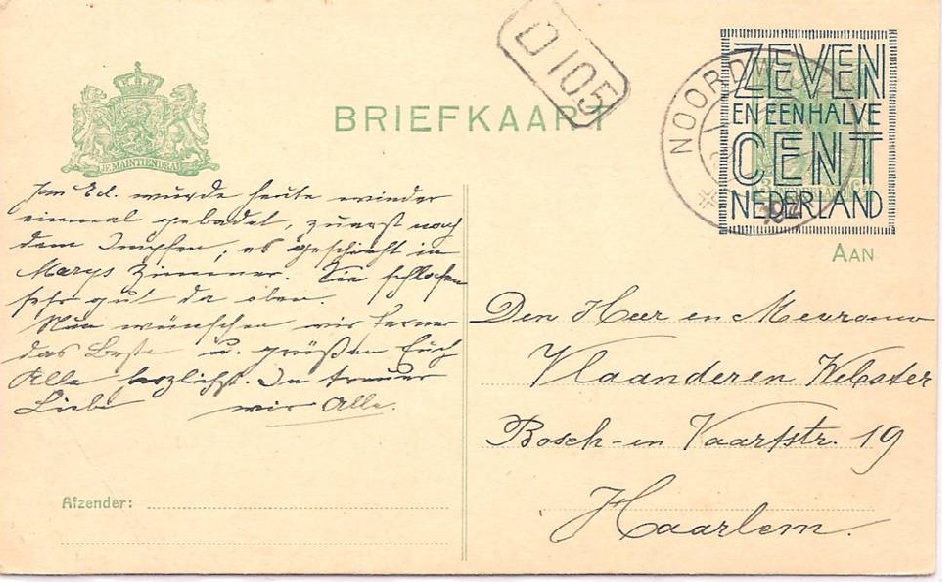 D 105
BRIEFKAART
JE MAINTIENDRAI
NOORDW
ZEVEN
EN EEN HALVE
CENT
NEDERLAND
AAN
Im Ed. wurde heute wieder
einmal gebadet, zuerst nach
dem Impfen; es geschieht in
Marys Zimmer. Sie schlafen
sehr gut da oben.
Nun wünschen wir ferner
das Beste u. grüßen Euch
Alle herzlichst. In treuer
Liebe wir Alle.
Den Heer en Mevrouw
Vlaanderen Welster
Bosch- en Vaartstr. 19
Haarlem.
Afzender: